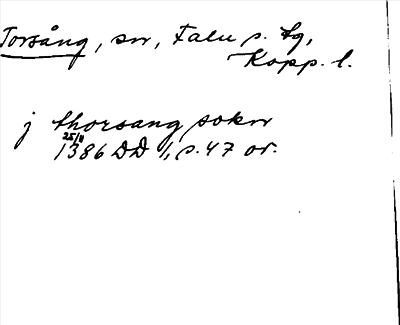 Torsång, sn, Falu s. tg,
Kopp. l.
j thorsang sokn
25/11
1386 DD 1, s. 47 or.